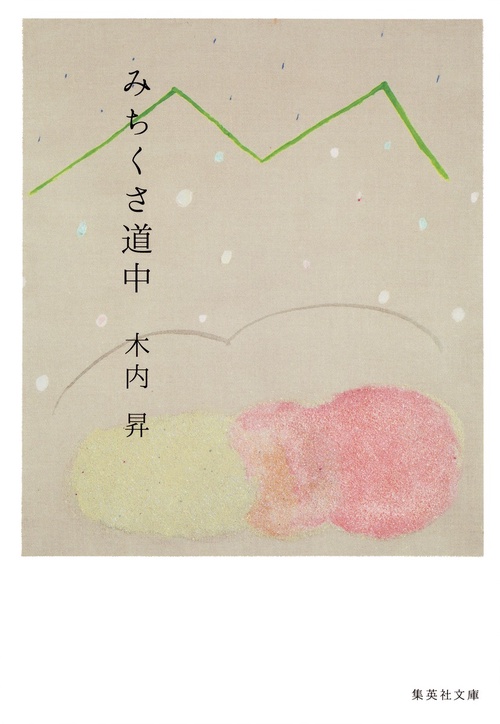 みちくさ道中
木内 昇
集英社文庫